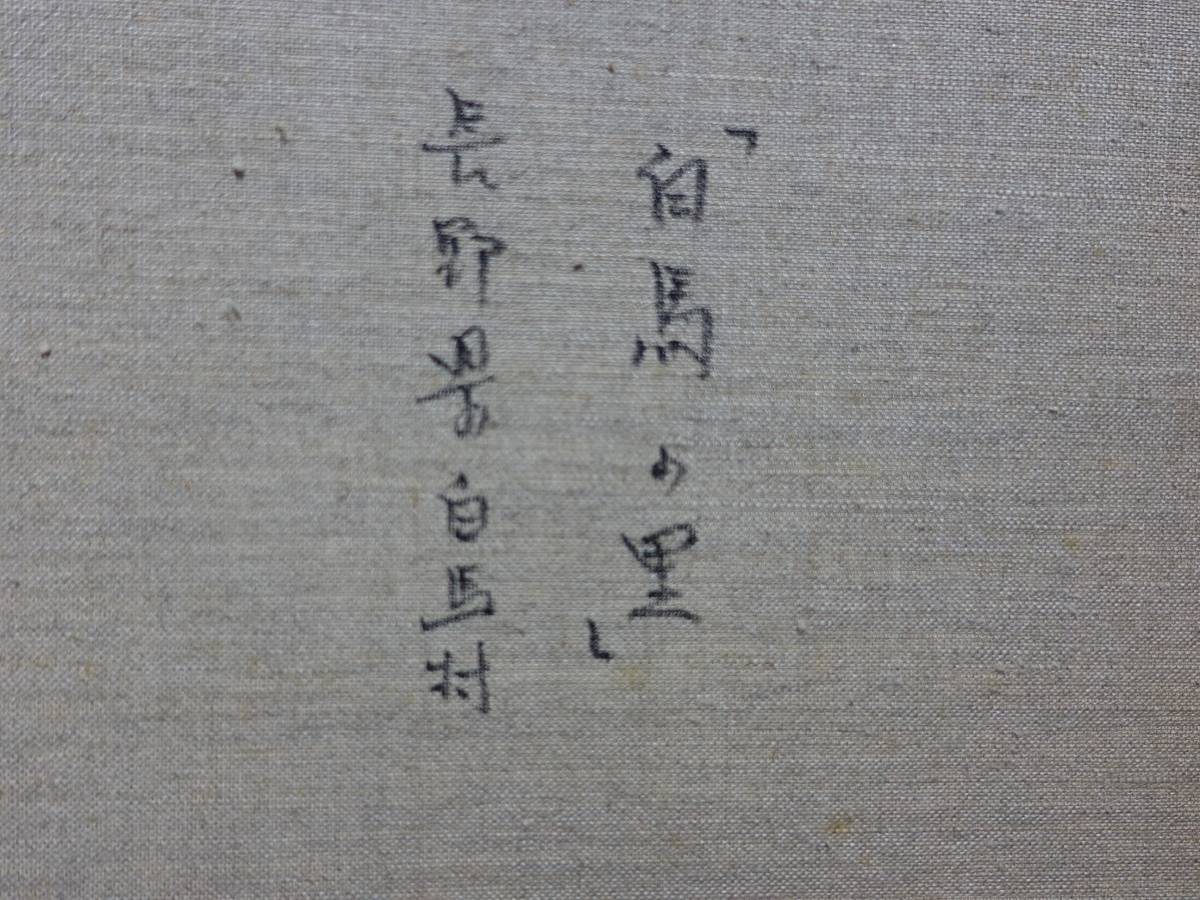 「白馬の里」
長野県白馬村